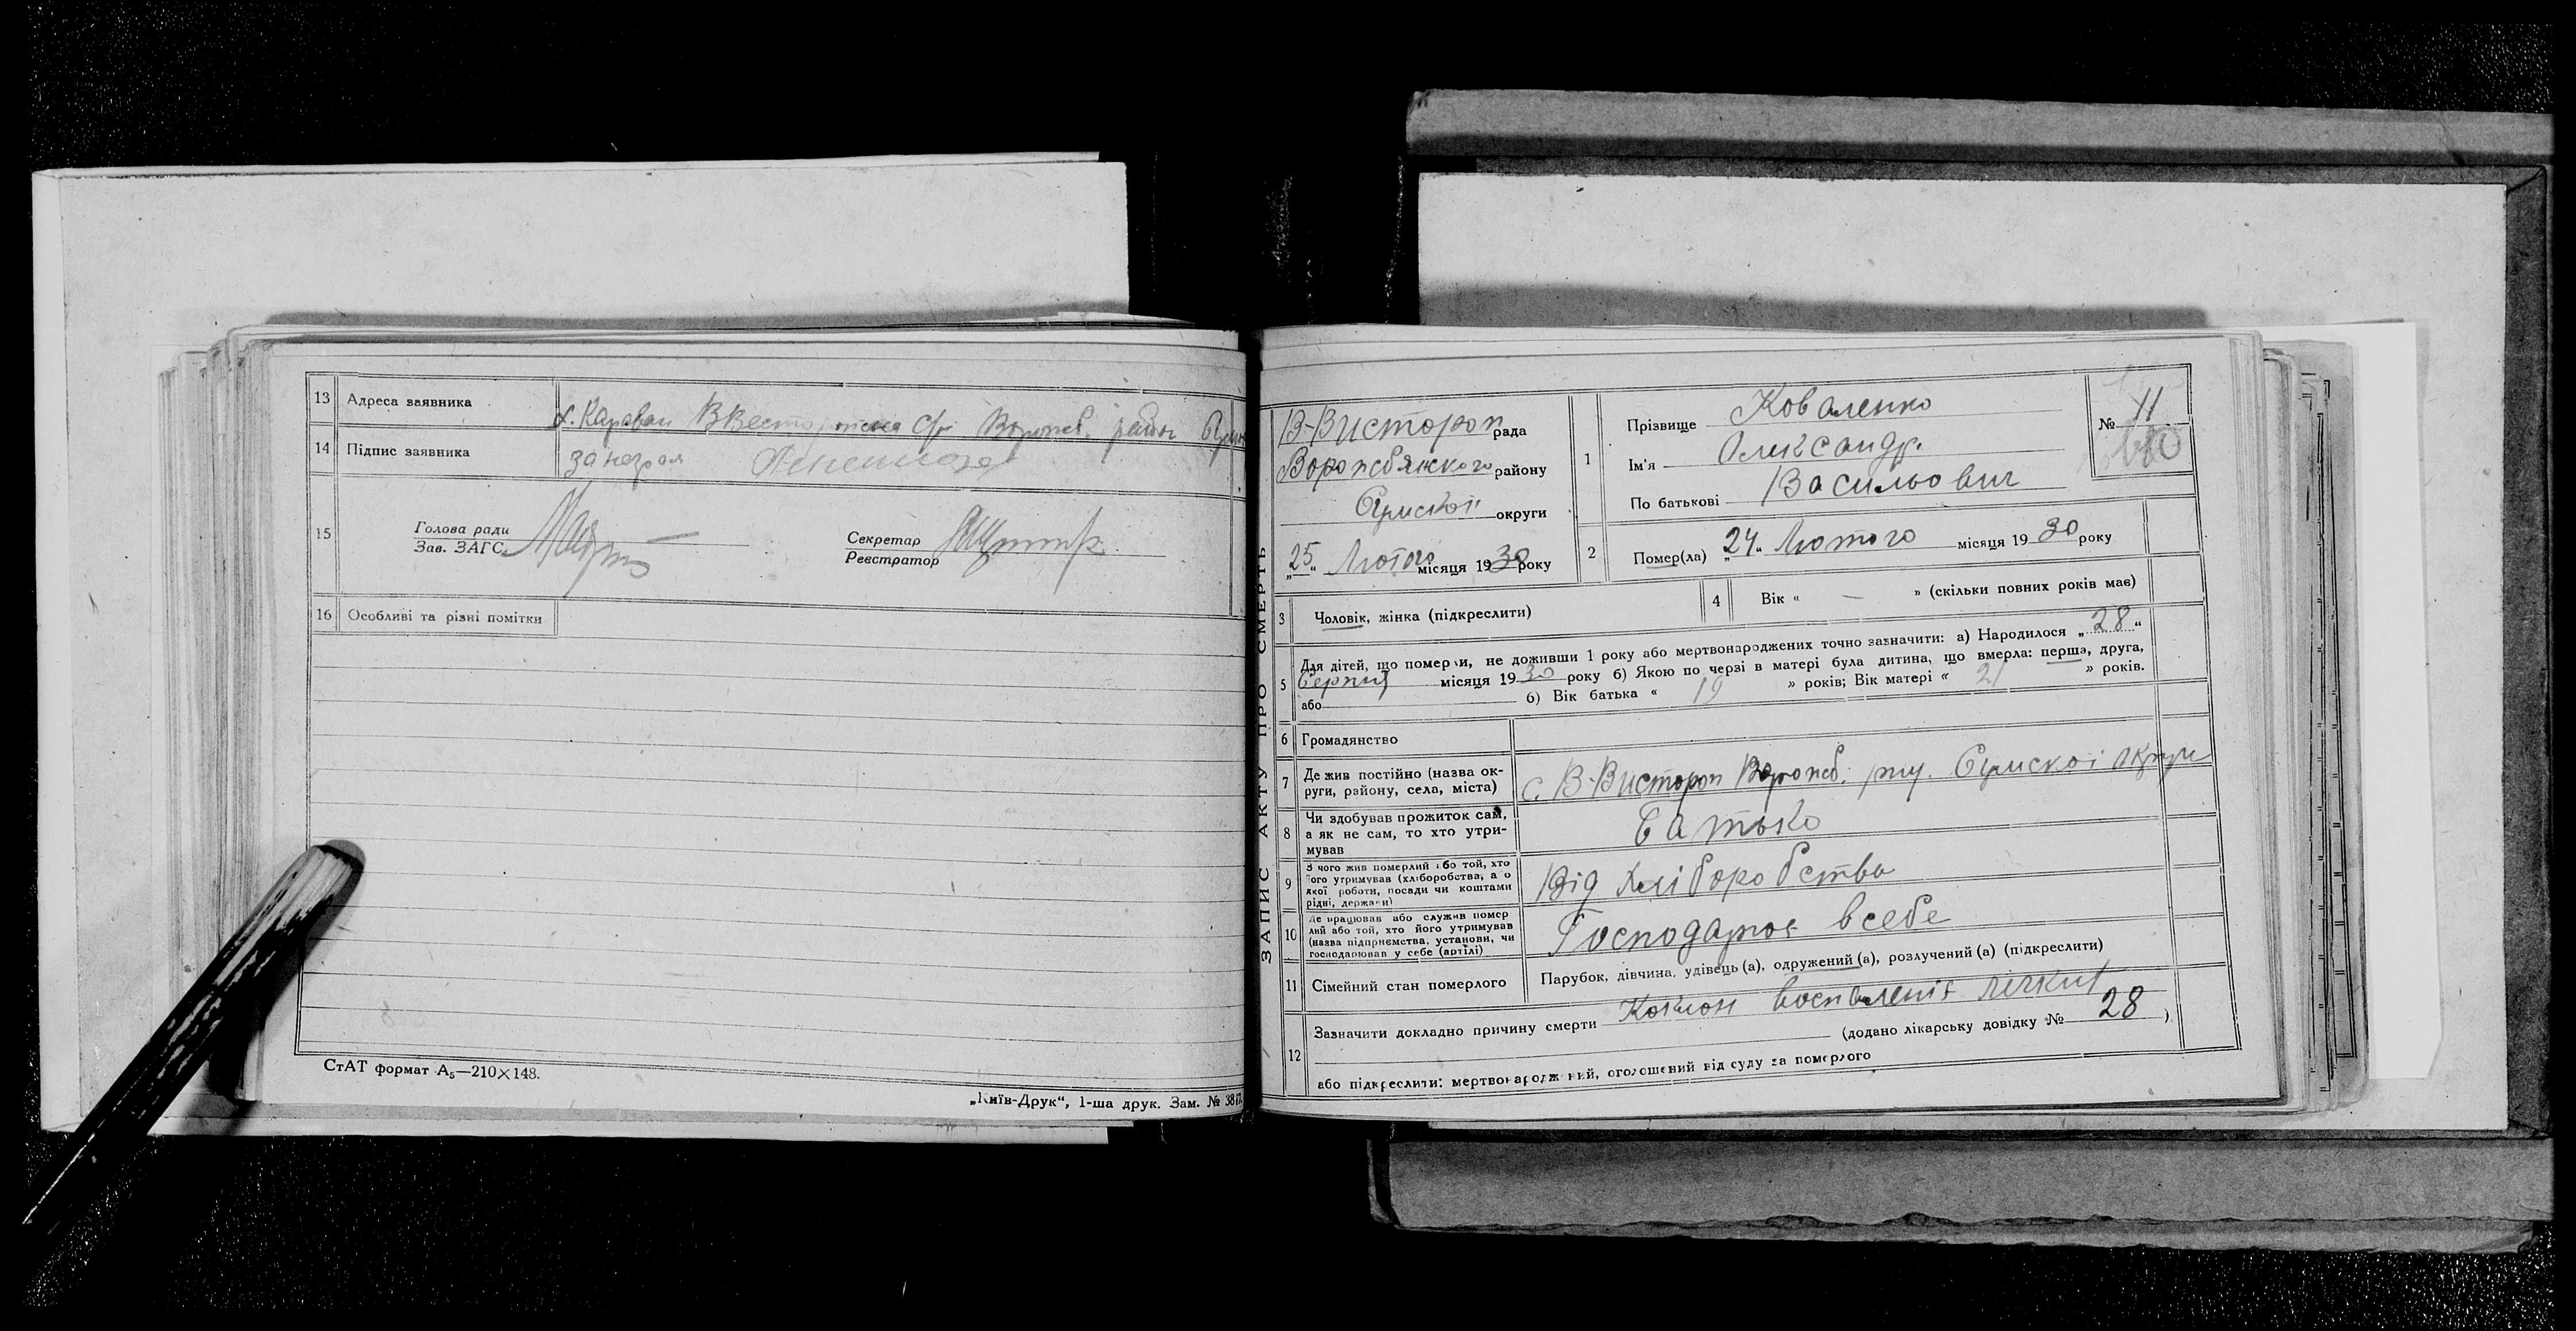 13 Адреса заявника х. Караван
14 Підпис заявника
15 Голова ради
Зав. ЗАГС
Секретар
Реєстратор
16 Особливі та різні помітки
СтАТ формат А5—210×148.
„Київ-Друк“, 1-ша друк. Зам. №
ЗАПИС АКТУ ПРО СМЕРТЬ
В-Вистороп рада
Ворожбянского району
Сумскої округи
„25“ Лютого місяця 1930 року
1 Прізвище Коваленко
Ім'я Олександр.
По батькові Васильович
№ 11
2 Помер(ла) „24“ Лютого місяця 1930 року
3 Чоловік, жінка (підкреслити)
4 Вік « — » (скільки повних років має)
5 Для дітей, що померли, не доживши 1 року або мертвонароджених точно зазначити: а) Народилося „28“
Серпня місяця 1930 року б) Якою по черзі в матері була дитина, що вмерла: перша, друга,
або б) Вік батька « 19 » років; Вік матері « 21 » років.
6 Громадянство
7 Де жив постійно (назва ок-
руги, району, села, міста) с. В-Вистороп Ворожб. рну. Сумскої округи
8 Чи здобував прожиток сам,
а як не сам, то хто утри-
мував Батько
9 З чого жив померлий або той, хто
його утримував (хліборобства, а о
якої роботи, посади чи коштами
рідні, держави) Від хліборобства
10 Де працював або служив помер
лий або той, хто його утримував
(назва підприємства, установи, чи
господарював у себе (артілі) Господарює в себе
11 Сімейний стан померлого Парубок, дівчина, удівець(а), одружений(а), розлучений(а) (підкреслити)
12 Зазначити докладно причину смерти воспаленія
(додано лікарську довідку № 28 )
або підкреслити: мертвонароджений, оголошений від суду за померлого